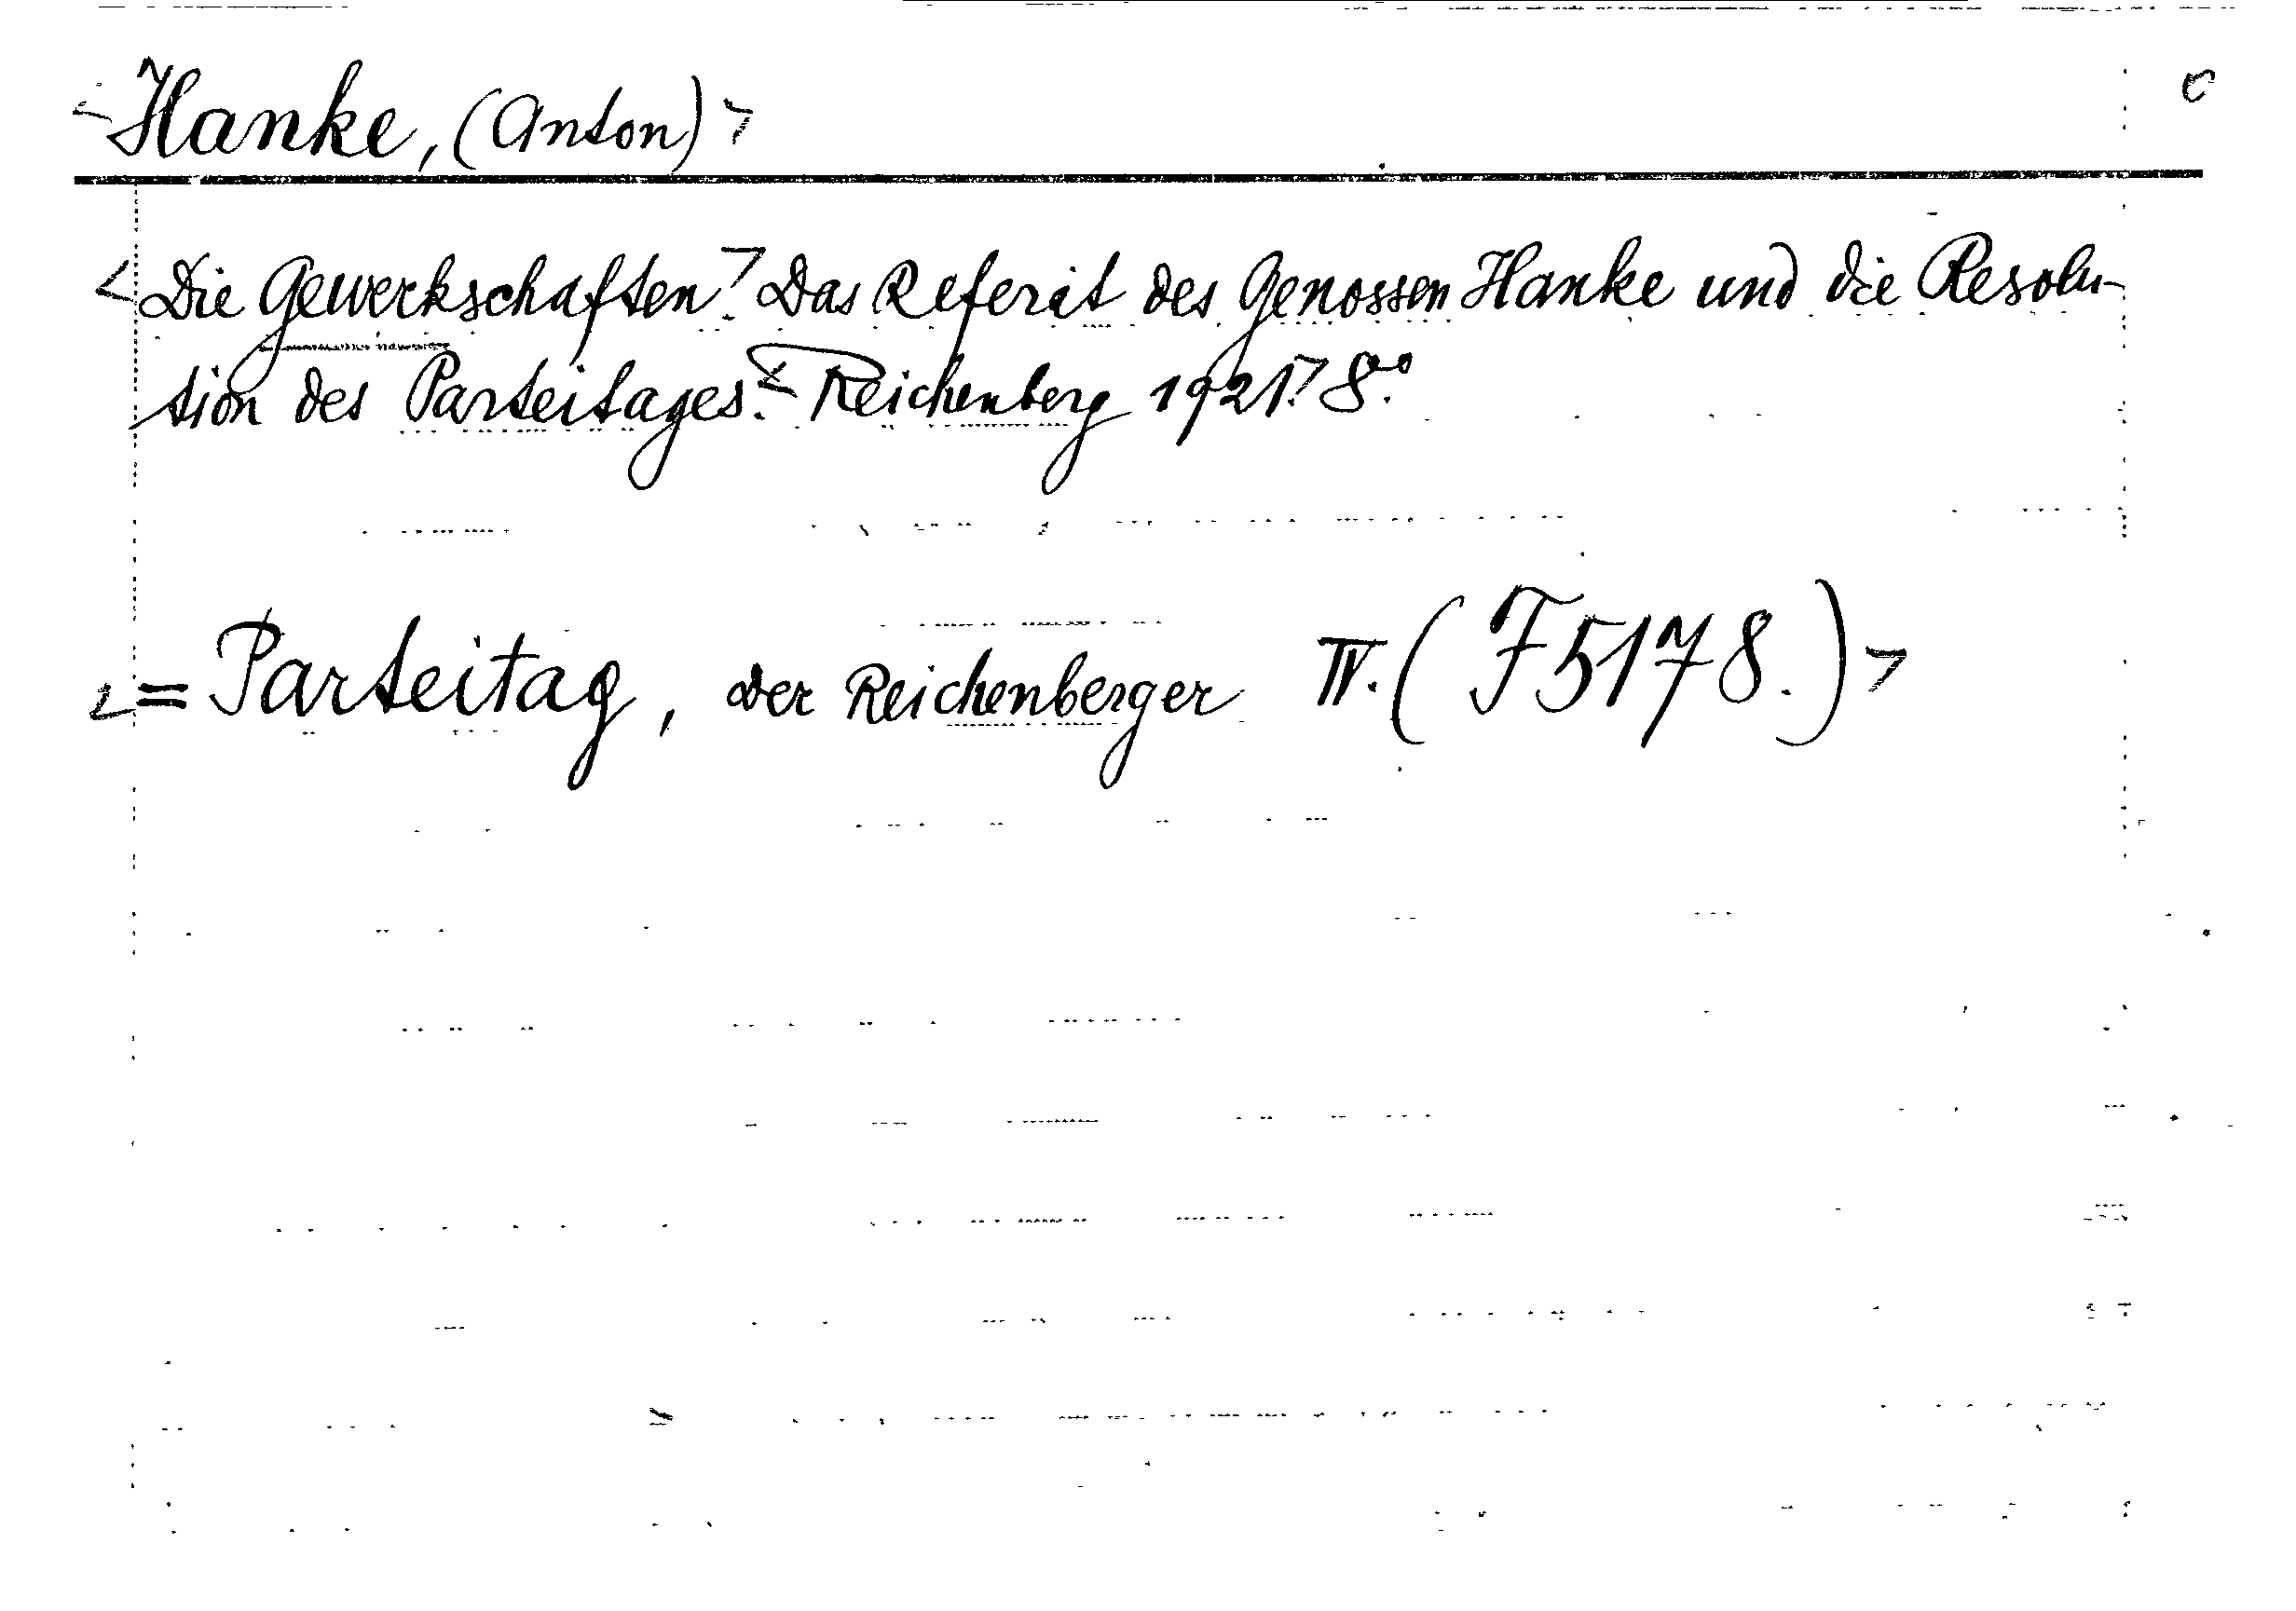 <Hanke, (Anton)> c
<Die Gewerkschaften.> Das Referat des Genossen Hanke und die Resolu-
tion des Parteitages. <Reichenberg 1921.> 8°.
<= Parteitag, der Reichenberger IV. (F5178.)>